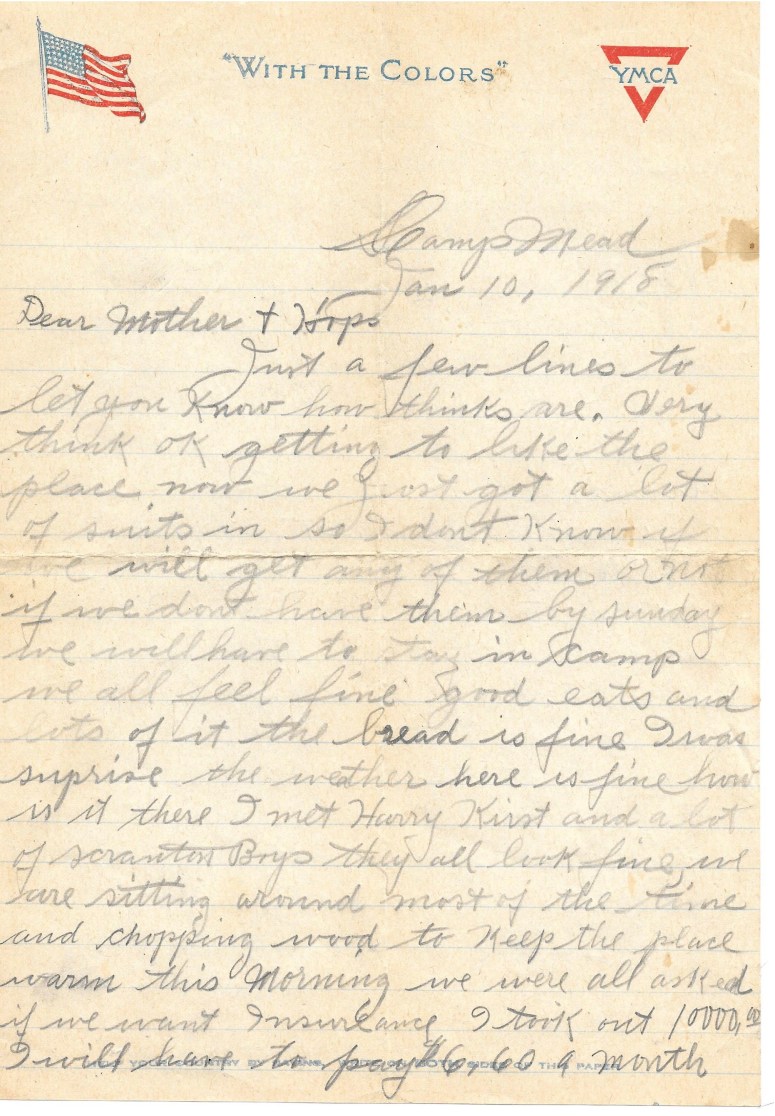 "WITH THE COLORS"
YMCA
Camp Mead
Jan 10, 1918
Dear Mother + Pops
Just a few lines to
let you Know how thinks are. Very
think ok getting to like the
place now we just got a lot
of suits in so I dont Know if
we will get any of them or not
if we dont have them by sunday
we will have to stay in camp
we all feel fine good eats and
lots of it the bread is fine I was
suprise the weather here is fine how
is it there I met Harry Kirst and a lot
of scranton Boys they all look fine, we
are sitting around most of the time
and chopping wood to Keep the place
warm this Morning we were all asked
if we want Insurance I took out 10000,00
I will have to pay $6,60 a month
YOUR BY SIDES OF THIS PAPER